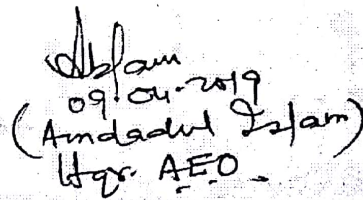 09.04.2019
(Amdadul Islam)
Hqr. AEO.